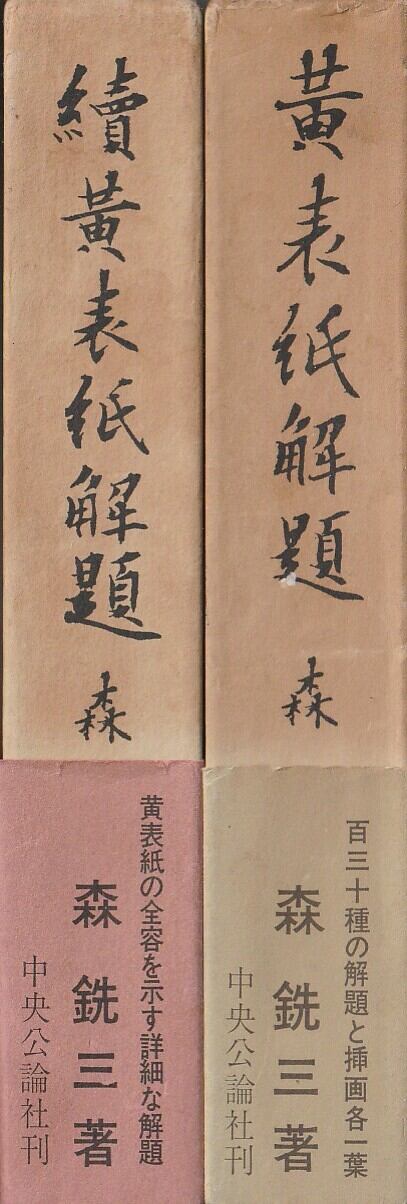 黃表紙解題
森
百三十種の解題と挿画各一葉
森銑三著
中央公論社刊
續黃表紙解題
森
黄表紙の全容を示す詳細な解題
森銑三著
中央公論社刊